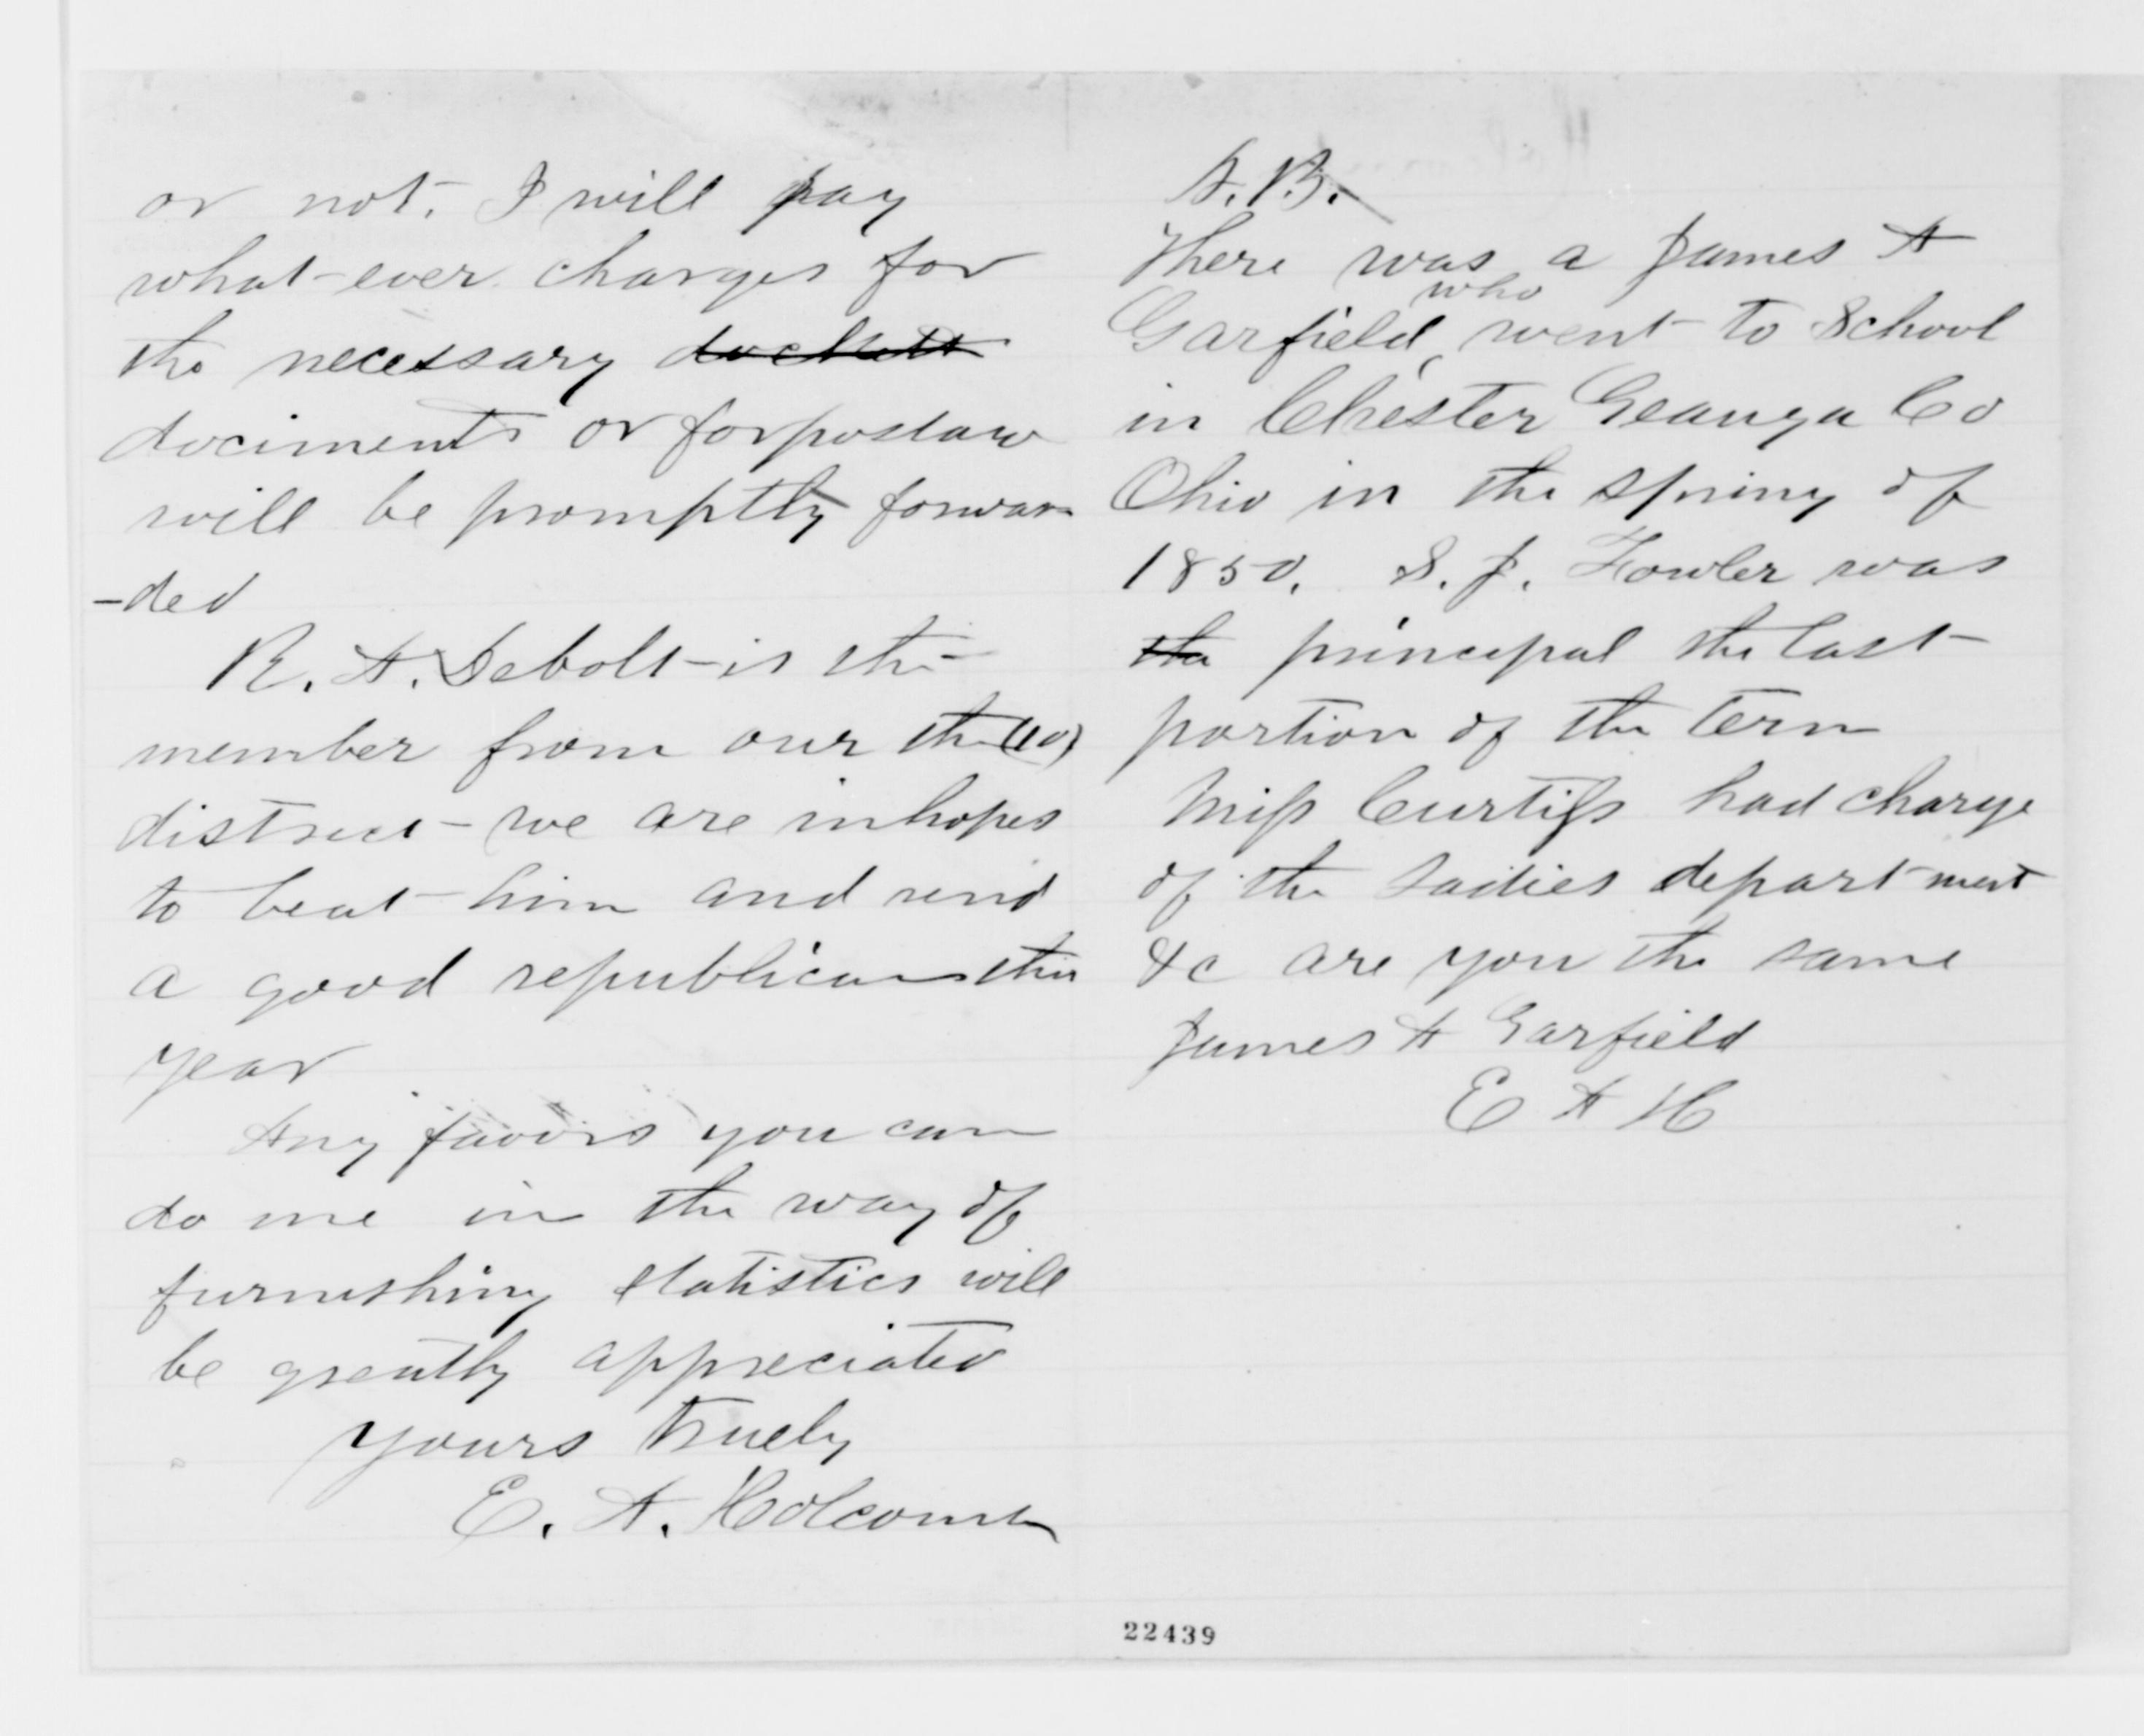 or not. I will pay
what-ever charges for
the necessary
dociments or for postaw
will be promptly forwar
-ded
R. A. Debolt is the
member from our the (10)
district - we are in hopes
to beat him and send
a good republican this
year
Any favors you can
do me in the way of
furnishing statistics will
be greatly appreciated
yours truely
E. A. Holcomb
N.B.
There was a James A
Garfield, who went to School
in Chester Geauga Co
Ohio in the spring of
1850. S. J. Fowler was
the principal the last
portion of the term
Miss Curtiss had charge
of the Ladies department
&c are you the same
James A Garfield
E A H
22439